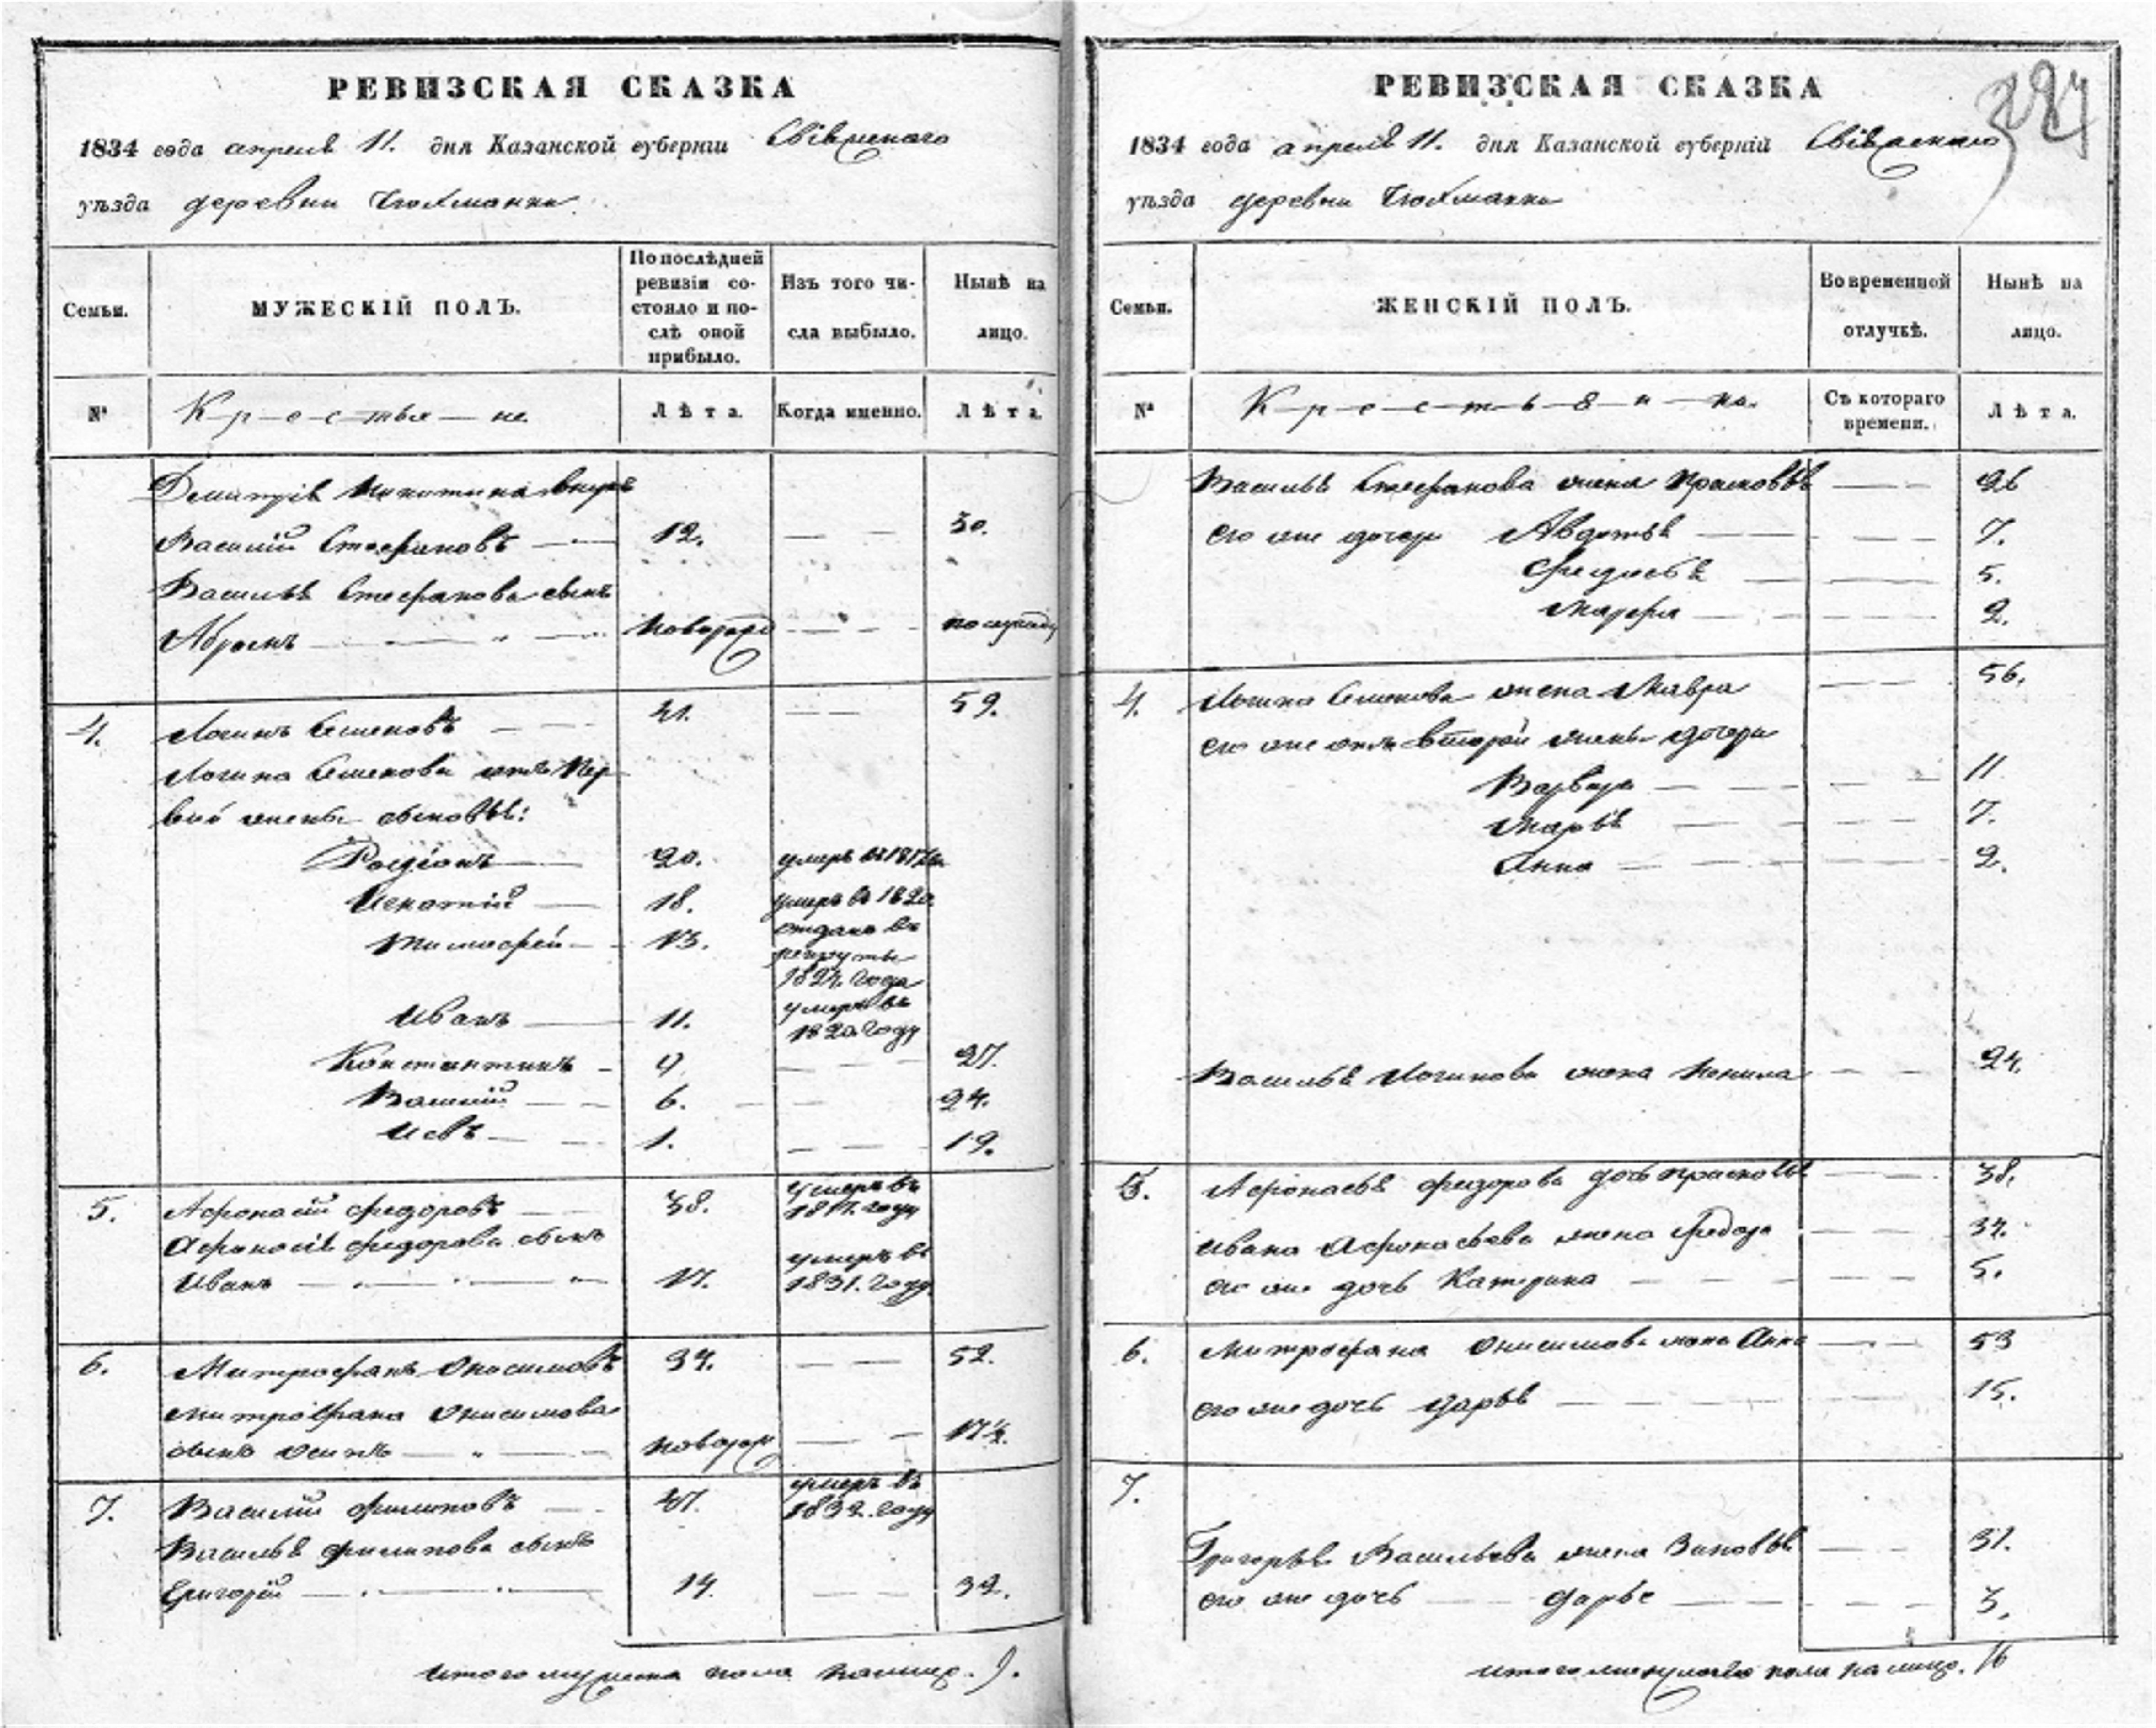 РЕВИЗСКАЯ СКАЗКА
1834 года апреля 11. дня Казанской губернiи Свiяжскаго
уѣзда деревни
Семьи.
МУЖЕСКIЙ ПОЛЪ.
По послѣдней
ревизiи со-
стояло и по-
слѣ оной
прибыло.
Изъ того чи-
сла выбыло.
Нынѣ на
лицо.
№
К-р-е-с-тья-не
Лѣта.
Когда именно.
Лѣта.
Дмитрiя Никитина внукъ
Василiй Стефановъ 12. 30.
Василья Стефанова сынъ
Абрамъ новорожд
4. Логинъ Семеновъ 41. 59.
Логина Семенова отъ пер
вой жены сыновья:
Родiонъ 20. умеръ въ
Игнатiй 18. умеръ въ 1820
Тимофей 13. отданъ въ
рекруты
1824. года
Иванъ 11. умеръ въ
1820 году
Константинъ 9 27.
Василiй 6. 24.
1. 19.
5. Афонасiй Федоровъ 38. умеръ въ
году
Афонасiя Федорова сынъ
Иванъ 17. умеръ въ
1831. году
6. Митрофанъ Онисимовъ 34. 52.
Митрофана Онисимова
сынъ Осипъ новорож 17½.
7. Василiй Филиповъ 47. умеръ въ
1832. году
Василья Филипова сынъ
Григорiй 14. 32.
Итого мужеска пола налицо. 9.
РЕВИЗСКАЯ СКАЗКА
1834 года апреля 11. дня Казанской губернiй Свiяжскаго
уѣзда деревни
Семьи.
ЖЕНСКIЙ ПОЛЪ.
Во временной
отлучкѣ.
Нынѣ на
лицо.
№
К-р-е-с-т-ь-я-н-ка.
Съ котораго
времени.
Лѣта.
Василья Стефанова жена Прасковья 26
его же дочери Авдотья 7.
Федосья 5.
Марфа 2.
4. Логина Семенова жена Мавра 56.
его же отъ второй жены дочери
Варвара 11
Марья 7.
Анна 2.
Василья Логинова жена Ненила 24.
5. Афонасья Федорова дочь Прасковья 38.
Ивана Афонасьева жена Федора 34.
его же дочь Катерина 5.
6. Митрофана Онисимова жена Анна 53
его же дочь Дарья 15.
7.
Григорья Васильева жена Зиновья 31.
его же дочь Дарья 3.
Итого женскаго пола налицо. 16